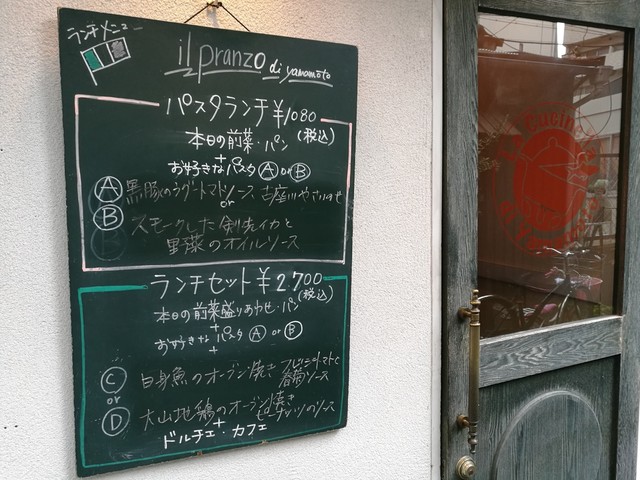 ランチメニュー
il pranzo di yamamoto
パスタランチ ¥1080
本日の前菜・パン (税込)
+
お好きなパスタ Ⓐ or Ⓑ
Ⓐ 黒豚のラグートマトソース
or
Ⓑ スモークした剣先イカと
のオイルソース
ランチセット ¥2,700
(税込)
本日の前菜盛りあわせ・パン
+
お好きなパスタ Ⓐ or Ⓑ
+
Ⓒ 白身魚のオーブン焼き フレッシュトマトと
香草ソース
or
Ⓓ 大山地鶏のオーブン焼き
ピーナッツのソース
+
ドルチェ・カフェ